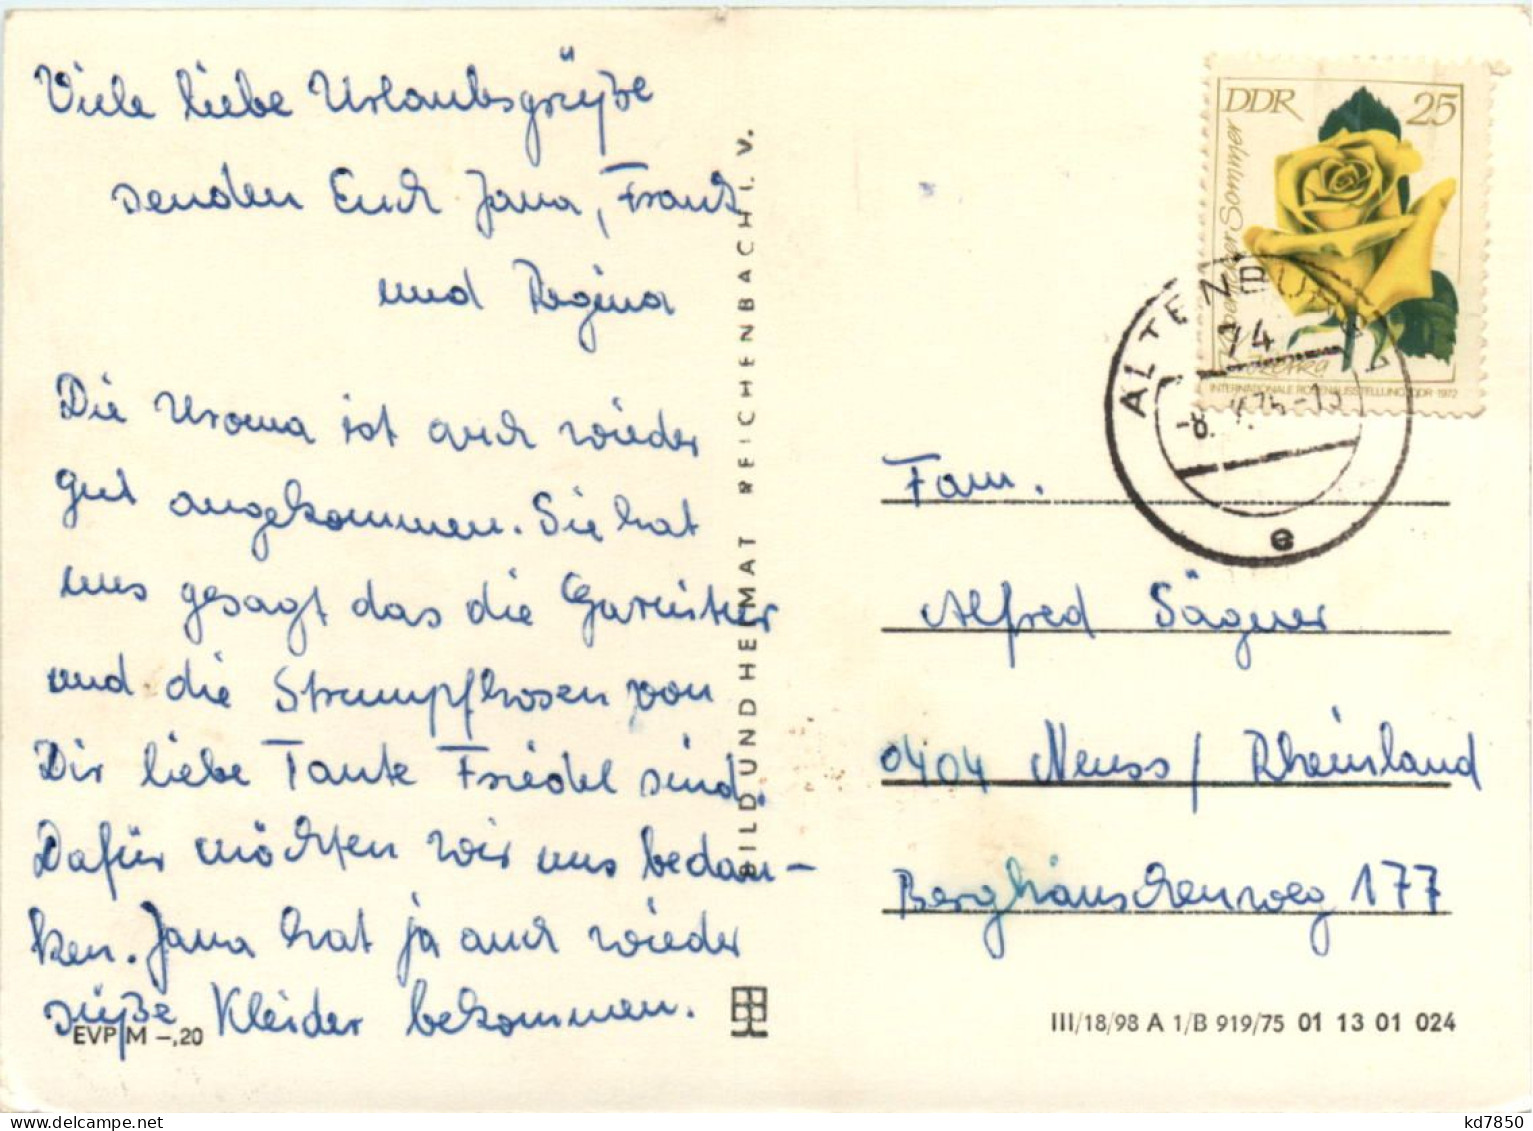 Viele liebe Urlaubsgrüße
senden Euch Jana, Frank
und Regina
Die Uroma ist auch wieder
gut angekommen. Sie hat
uns gesagt das die
und die Strumpfhosen von
Dir liebe Tante Friedel sind.
Dafür möchten wir uns bedan-
ken. Jana hat ja auch wieder
süße Kleider bekommen.
EVP M -,20
BILD UND HEIMAT REICHENBACH I. V.
DDR 25
Köpenicker Sommer
INTERNATIONALE ROSENAUSSTELLUNG DDR 1972
ALTENBURG
74
e
Fam.
Alfred Sägner
0404 Neuss / Rheinland
Berghäuschenweg 177
III/18/98 A 1/B 919/75 01 13 01 024
kd7850